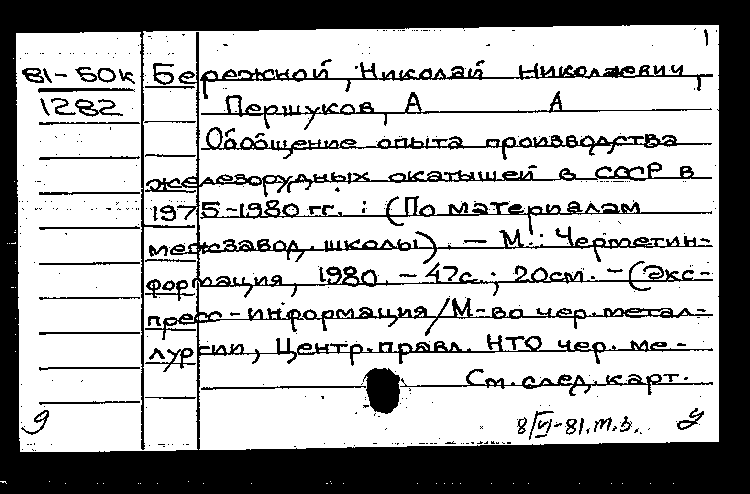 1
81-50к Бережной, Николай Николаевич,
1282 Першуков, А А
Обобщение опыта производства
железорудных окатышей в СССР в
1975-1980 гг. : (По материалам
межзавод. школы). — М.: Черметин-
формация, 1980. - 47с.; 20см. - (Экс-
пресс-информация/М-во чер. метал-
лургии, Центр. правл. НТО чер. ме-
См. след. карт.
8/VI-81.т.з.